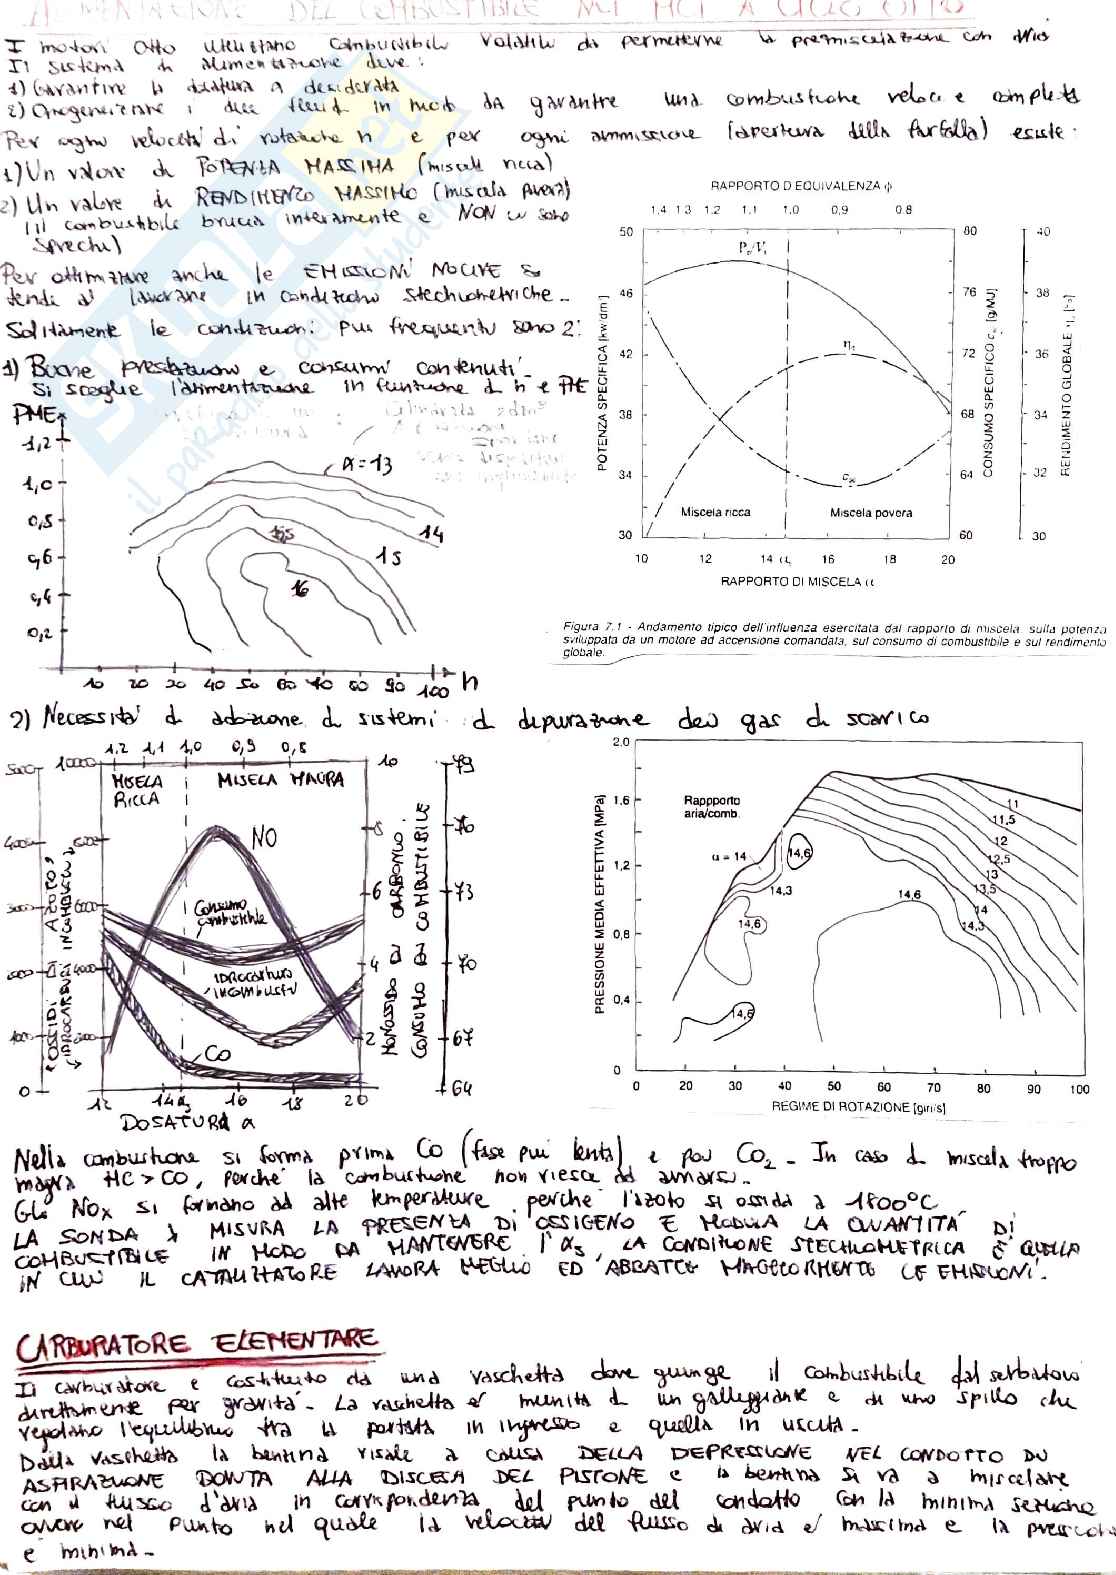 ALIMENTAZIONE DEL COMBUSTIBILE NEI MCI A CICLO OTTO
I motori Otto utilizzano combustibile volatile da permetterne la premiscelazione con aria
Il sistema di alimentazione deve:
1) Garantire la dosatura α desiderata
2) Omogeneizzare i due fluidi in modo da garantire una combustione veloce e completa
Per ogni velocità di rotazione n e per ogni ammissione (apertura della farfalla) esiste:
1) Un valore di POTENZA MASSIMA (miscela ricca)
2) Un valore di RENDIMENTO MASSIMO (miscela povera)
(il combustibile brucia interamente e NON vi sono
sprechi)
Per ottimizzare anche le EMISSIONI NOCIVE si
tende a lavorare in condizioni stechiometriche.
Solitamente le condizioni più frequenti sono 2:
1) Buone prestazioni e consumi contenuti.
Si sceglie l'alimentazione in funzione di n e PME
PME
1,2
1,0
0,8
0,6
0,4
0,2
α=13
14
15,5
15
16
10 20 30 40 50 60 70 80 90 100 n
RAPPORTO D'EQUIVALENZA ϕ
1,4 1,3 1,2 1,1 1,0 0,9 0,8
50 46 42 38 34 30
POTENZA SPECIFICA [kw/dm³]
ηg
Miscela ricca
Miscela povera
80 76 72 68 64 60
CONSUMO SPECIFICO [g/MJ]
40 38 36 34 32 30
RENDIMENTO GLOBALE
10 12 14 αs 16 18 20
RAPPORTO DI MISCELA α
Figura 7.1 - Andamento tipico dell'influenza esercitata dal rapporto di miscela sulla potenza
sviluppata da un motore ad accensione comandata, sul consumo di combustibile e sul rendimento
globale.
2) Necessità di adozione di sistemi di depurazione dei gas di scarico
1.2 1,1 1,0 0,9 0,8
MISELA RICCA
MISELA MAGRA
NO
Consumo combustibile
IDROCARBURI INCOMBUSTI
CO
OSSIDI DI AZOTO,
IDROCARBURI INCOMBUSTI
10 8 6 4 2
MONOSSIDO DI CARBONIO,
CONSUMO DI COMBUSTIBILE
79 76 73 70 67 64
12 14 αs 16 18 20
DOSATURA α
2.0 1,6 1,2 0,8 0,4 0
PRESSIONE MEDIA EFFETTIVA [MPa]
Rappporto
aria/comb.
α = 14
14,6
14,3
14,6
14,6
14,6
11
11,5
12
12,5
13
13,5
14
14,3
0 20 30 40 50 60 70 80 90 100
REGIME DI ROTAZIONE [giri/s]
Nella combustione si forma prima CO (fase più lenta) e poi CO2. In caso di miscela troppo
magra HC > CO, perché la combustione non riesce ad avviarsi.
Gli NOx si formano ad alte temperature perché l'azoto si ossida a 1800°C
LA SONDA λ MISURA LA PRESENZA DI OSSIGENO E MODULA LA QUANTITÀ DI
COMBUSTIBILE IN MODO DA MANTENERE l'αs, LA CONDIZIONE STECHIOMETRICA È QUELLA
IN CUI IL CATALIZZATORE LAVORA MEGLIO ED ABBATTE MAGGIORMENTE LE EMISSIONI.
CARBURATORE ELEMENTARE
Il carburatore è costituito da una vaschetta dove giunge il combustibile dal serbatoio
direttamente per gravità. La vaschetta è munita di un galleggiante e di uno spillo che
regolano l'equilibrio tra la portata in ingresso e quella in uscita.
Dalla vaschetta la benzina risale a causa DELLA DEPRESSIONE NEL CONDOTTO DI
ASPIRAZIONE DOVUTA ALLA DISCESA DEL PISTONE e la benzina si va a miscelare
con il flusso d'aria in corrispondenza del punto del condotto con la minima sezione
ovvero nel punto nel quale la velocità del flusso di aria è massima e la pressione
è minima.